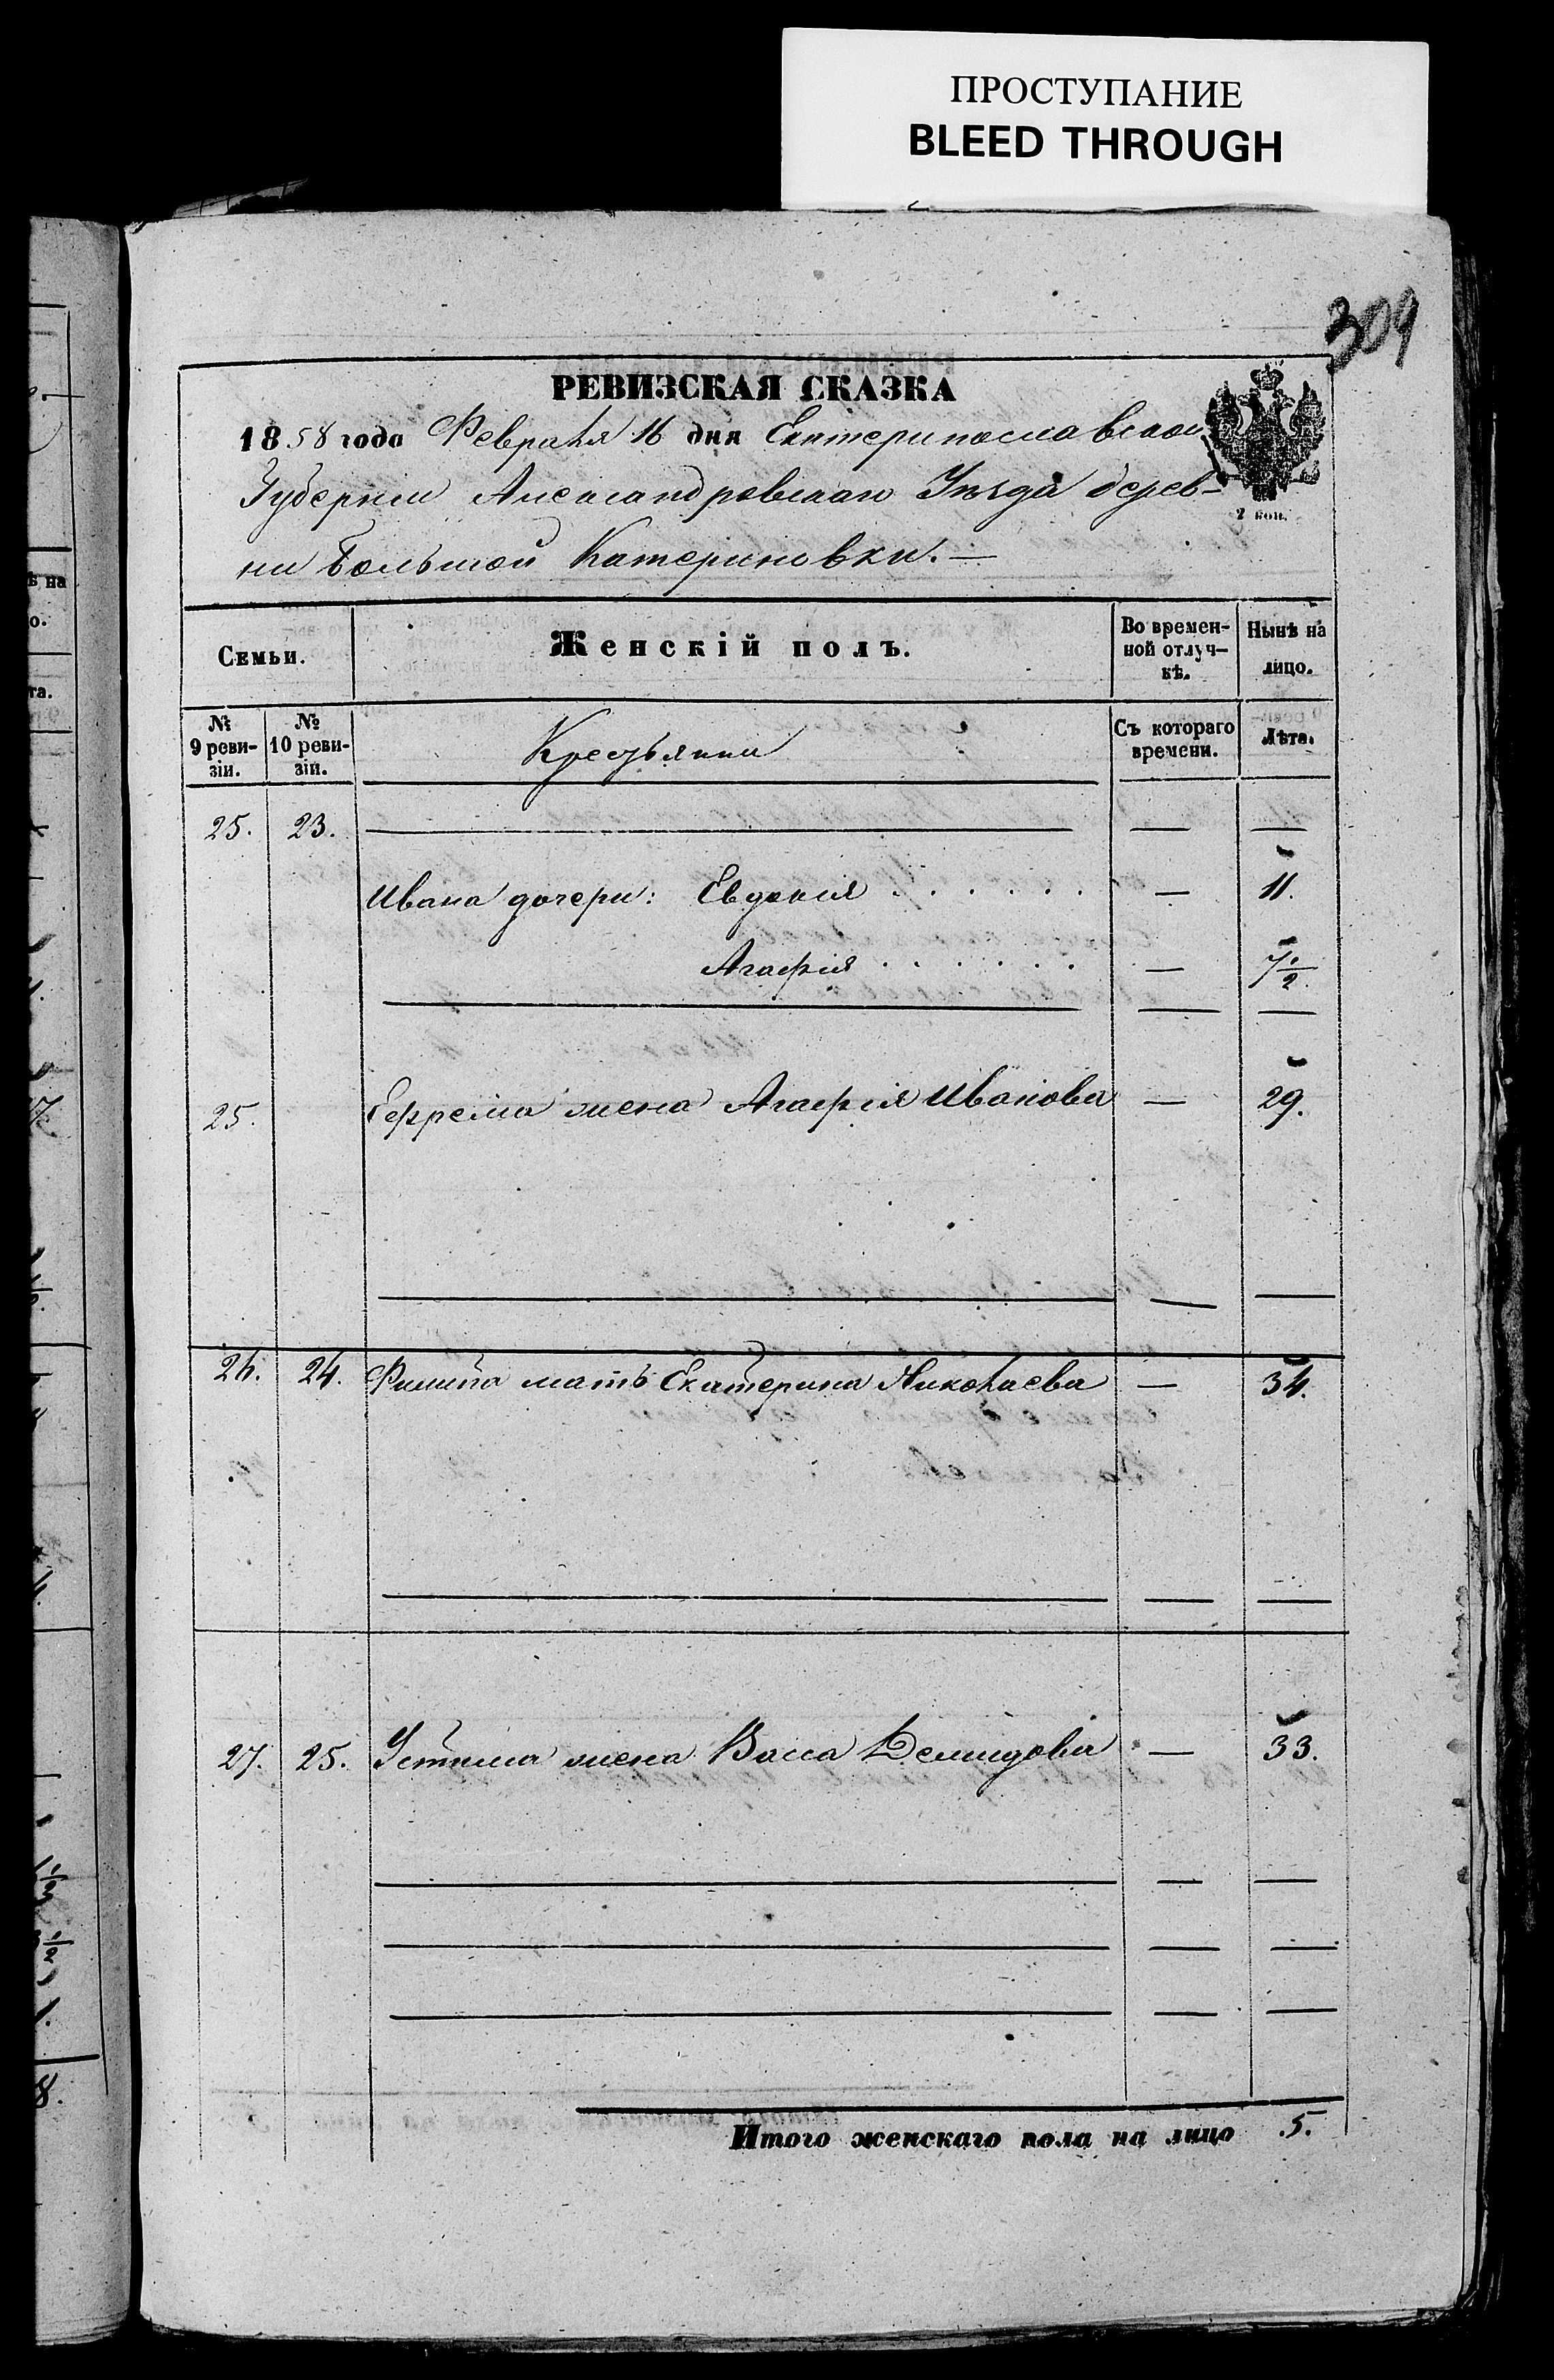 ПРОСТУПАНИЕ
BLEED THROUGH
309
РЕВИЗСКАЯ СКАЗКА
1858 года Февраля 16 дня Екатеринославской
Губернии Александровскаго Уѣзда дерев-
ни Большой Катериновки. —
2 коп.
Семьи. Женскій полъ. Во времен-ной отлуч-кѣ. Нынѣ на лицо.
№ 9 реви-зіи. № 10 реви-зіи. Крестьянки Съ котораго времени. Лѣта.
25. 23. — — —
Ивана дочери: Евдокія . . . . . . — 11.
Агафія . . . . . . — 7½.
25. Ефрема жена Агафія Иванова — 29.
26. 24. Филипа мать Екатерина Николаева — 34.
27. 25. Устима жена Васса Демидова — 33.
Итого женскаго пола на лицо .5.